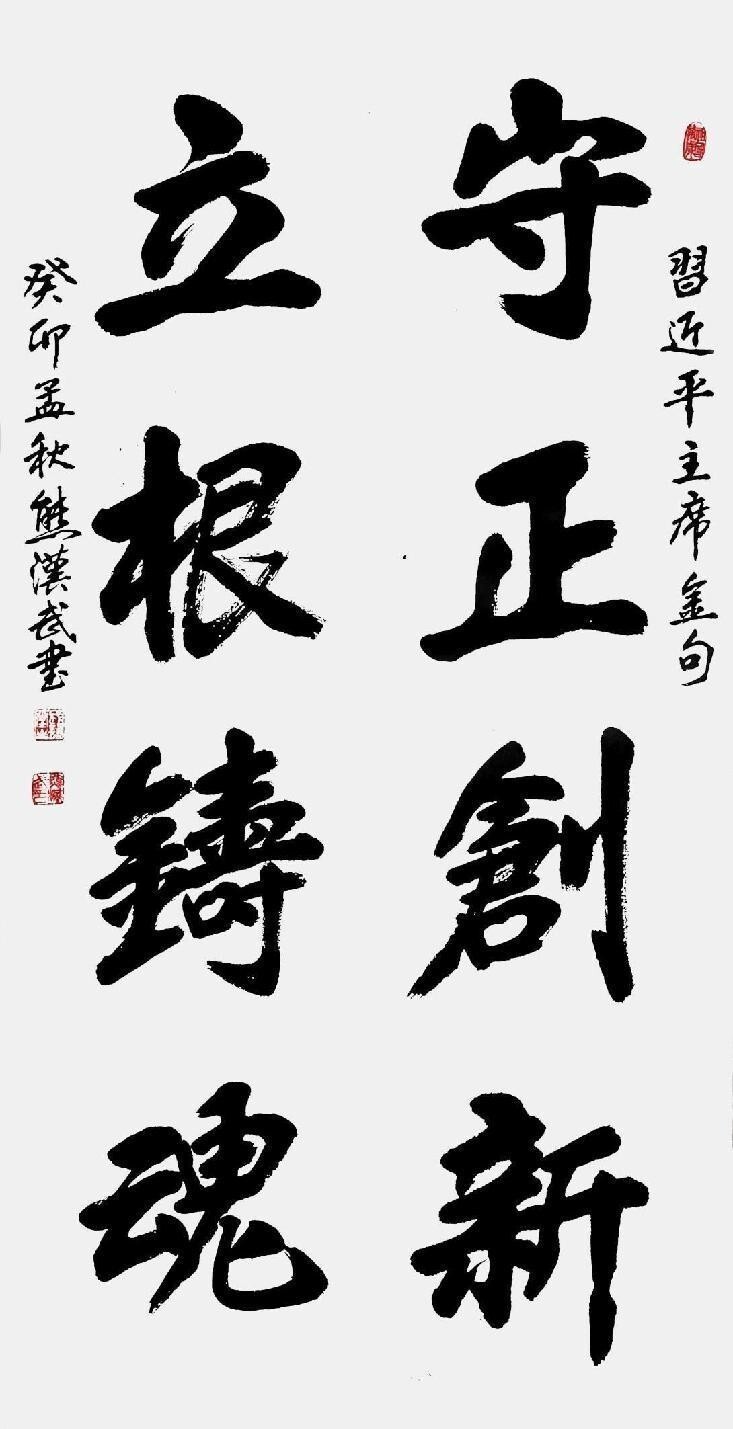 習近平主席金句
守正創新
立根鑄魂
癸卯孟秋熊漢武書